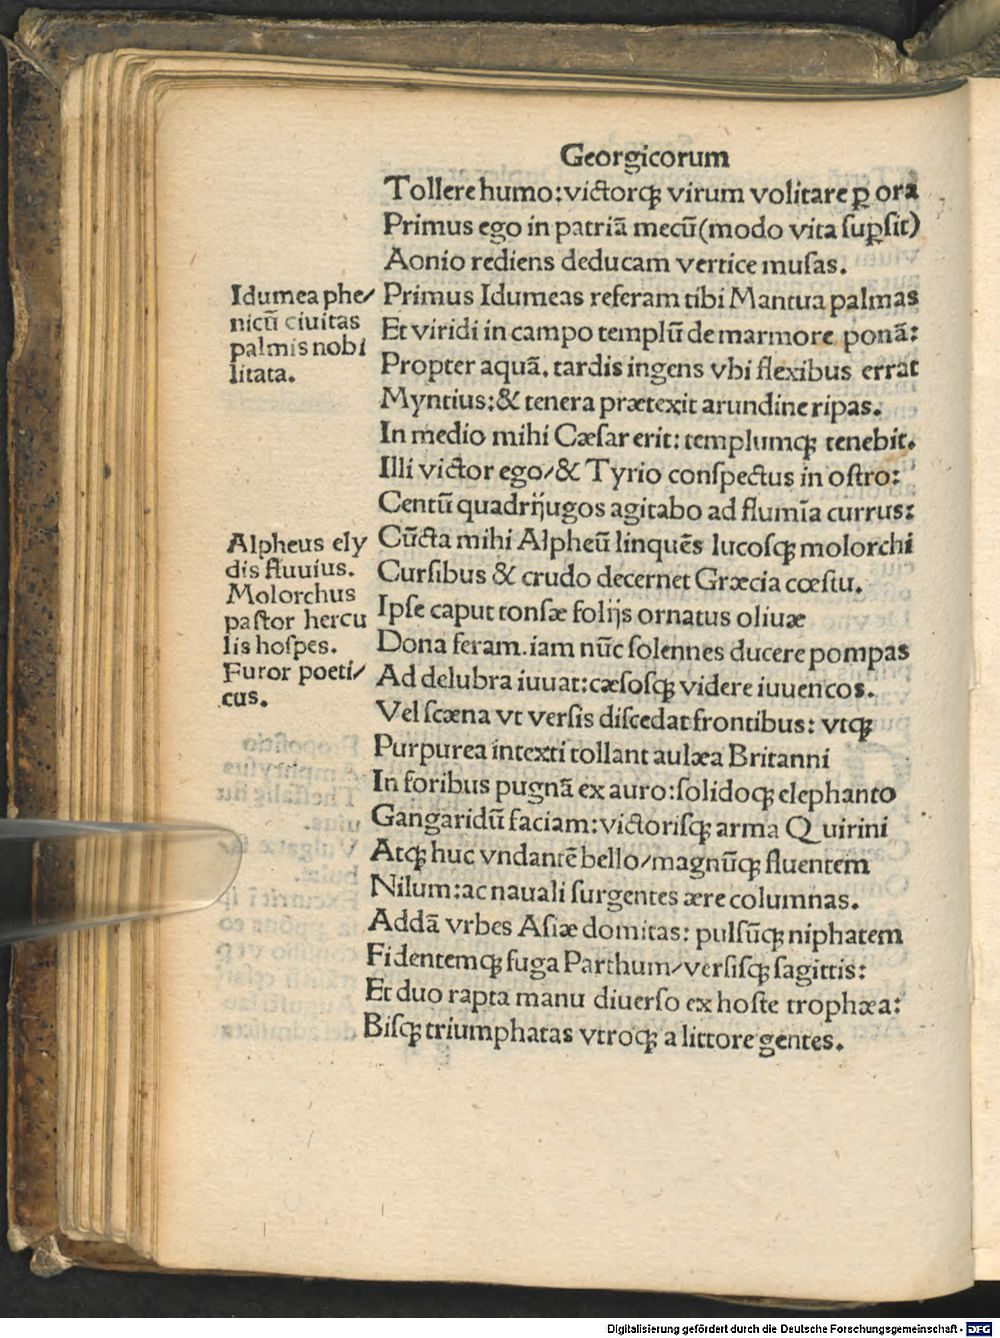 Georgicorum
Tollere humo: victorqꝫ virum volitare ꝑ ora
Primus ego in patriã mecũ (modo vita ſuꝑſit)
Aonio rediens deducam vertice muſas.
Primus Idumeas referam tibi Mantua palmas
Et viridi in campo templũ de marmore ponã:
Propter aquã. tardis ingens vbi flexibus errat
Myntius: & tenera prætexit arundine ripas.
In medio mihi Cæſar erit: templumqꝫ tenebit.
Illi victor ego/ & Tyrio conſpectus in oſtro:
Centũ quadrijugos agitabo ad flumĩa currus:
Cũcta mihi Alpheũ linquẽs lucoſqꝫ molorchi
Curſibus & crudo decernet Græcia cœſtu.
Ipſe caput tonſæ folijs ornatus oliuæ
Dona feram. iam nũc ſolennes ducere pompas
Ad delubra iuuat: cæſoſqꝫ videre iuuencos.
Vel ſcæna vt verſis diſcedat frontibus: vtqꝫ
Purpurea intexti tollant aulæa Britanni
In foribus pugnã ex auro: ſolidoqꝫ elephanto
Gangaridũ faciam: victoriſqꝫ arma Quirini
Atqꝫ huc vndantẽ bello/ magnũqꝫ fluentem
Nilum: ac nauali ſurgentes ære columnas.
Addã vrbes Aſiæ domitas: pulſũqꝫ niphatem
Fidentemqꝫ fuga Parthum/ verſiſqꝫ ſagittis:
Et duo rapta manu diuerſo ex hoſte trophæa:
Biſqꝫ triumphatas vtroqꝫ a littore gentes.
Idumea phe/
nicũ ciuitas
palmis nobi
litata.
Alpheus ely
dis fluuius.
Molorchus
paſtor hercu
lis hoſpes.
Furor poeti/
cus.
Digitalisierung gefördert durch die Deutsche Forschungsgemeinschaft - DFG